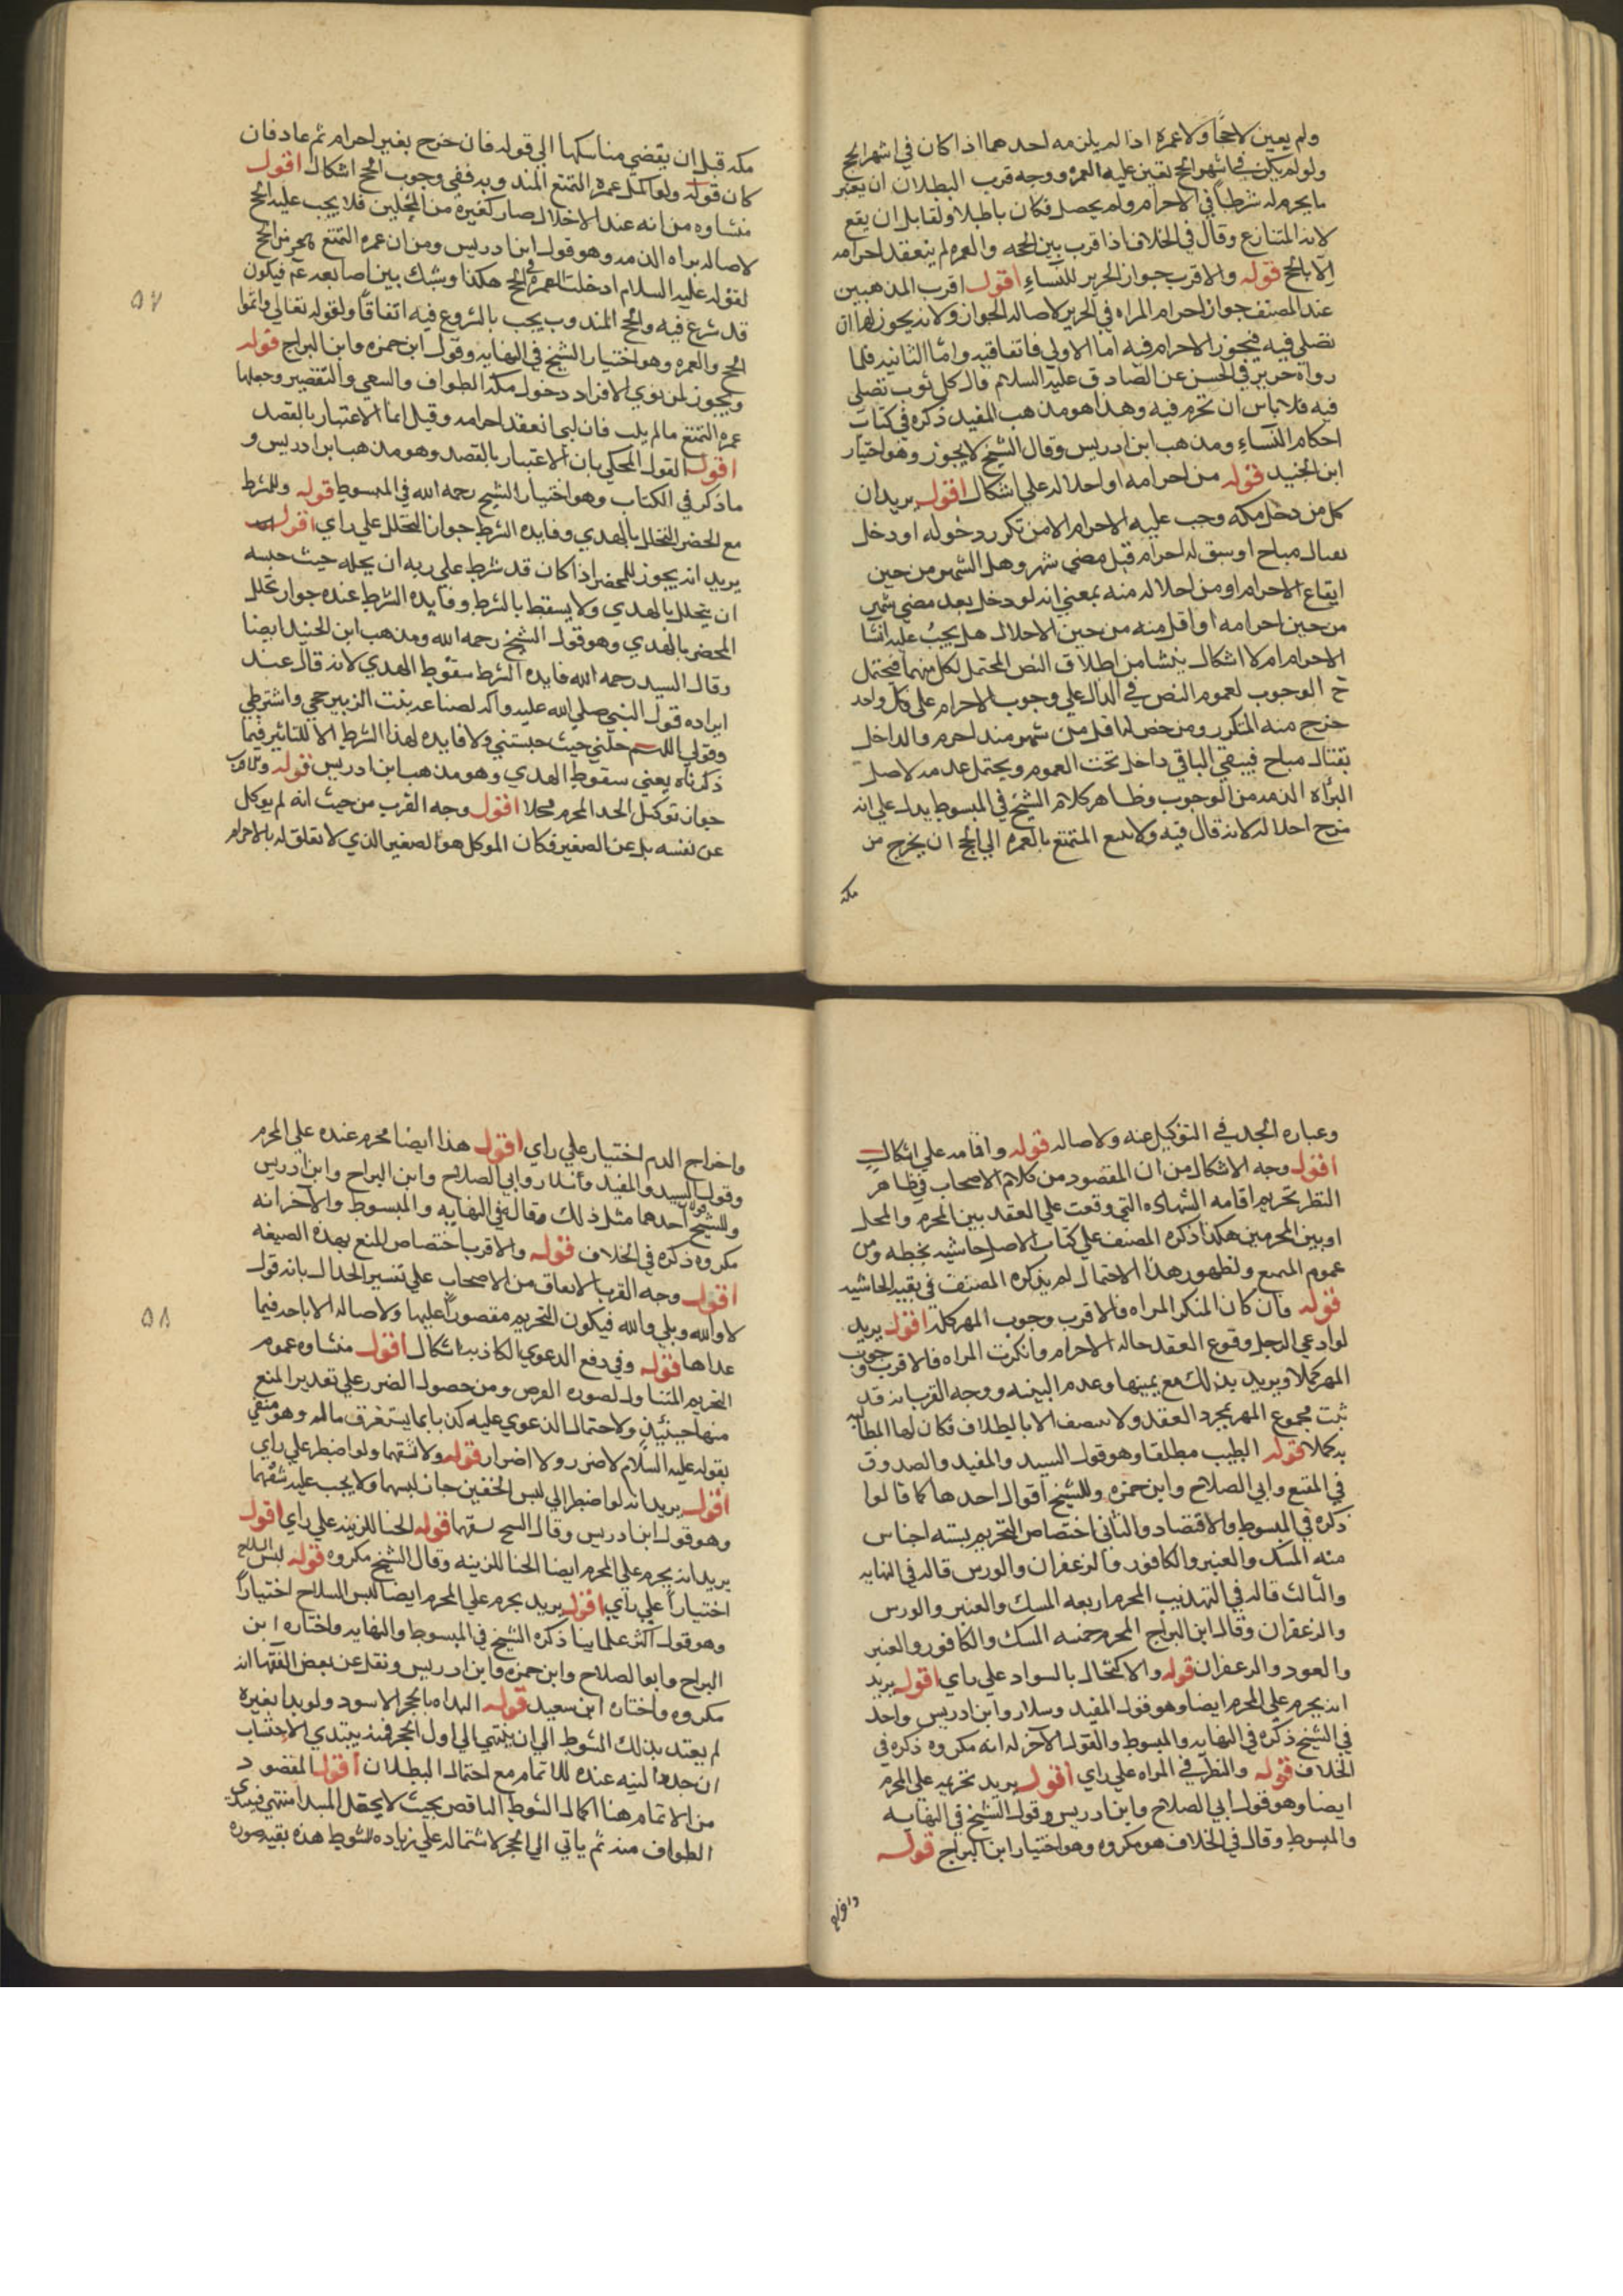 ولم يعين لاحجا ولا عمرة اذا لم يلزمه احدهما اذا كان في اشهر الحج
ولو لم يكن في اشهر الحج تعين عليه العمره ووجه قرب البطلان ان يعتبر
ما يحرم له شرطا في الاحرام ولم يحصل فكان باطلا ولقابل ان يقع
لانه المتنازع وقال في الخلاف اذا قرب بين الحجه والعمره لم ينعقد احرامه
الا بالحج قوله والاقرب جواز الحرير للنساء اقول اقرب المذهبين
عند المصنف جواز احرام المراه في الحرير لاصاله الجواز ولانه يجوز لها ان
تصلي فيه فيجوز الاحرام فيه اما الاولي فاتفاقيه واما الثانيه فلما
رواه حريز في الحسن عن الصادق عليه السلام قال كل ثوب تصلي
فيه فلا باس ان تحرم فيه وهذا هو مذهب المفيد ذكره في كتاب
احكام النساء ومذهب ابن ادريس وقال الشيخ لا يجوز وهو اختيار
ابن الجنيد قوله من احرامه او احلاله علي اشكال اقول يريد ان
كل من دخل مكه وجب عليه الاحرام الا من تكرر دخوله او دخل
لقتال مباح او سبق له احرام قبل مضي شهر وهل الشهر من حين
ايقاع الاحرام او من احلاله منه بمعني انه لو دخل بعد مضي شهر
من حين احرامه او اقل منه من حين الاحلال هل يجب عليه انشا
الاحرام ام لا اشكال ينشا من اطلاق النص المحتمل لكل منهما فيحتمل
ح الوجوب لعموم النص في الدال علي وجوب الاحرام علي كل واحد
خرج منه المتكرر ومن حض لما قل من شهر منذ احرم والداخل
بقتال مباح فيبقي الباقي داخل تحت العموم ويحتمل عدمه لاصل
البراه الذمه من الوجوب وظاهر كلام الشيخ في المبسوط يدل علي انه
من احلاله لانه قال فيه ولا يسع المتمتع بالعمره الي الحج ان يخرج من
مكه
مكه قبل ان يقضي مناسكها الي قوله فان خرج بغير احرام ثم عاد فان
كان قوله ولو اكمل عمره التمتع المندوبه ففي وجوب الحج اشكال اقول
منشاوه من انه عند الاحلال صار كغيره من المحلين فلا يجب عليه الحج
لاصاله براه الذمه وهو قول ابن ادريس ومن ان عمره التمتع كجزء من الحج
لقوله عليه السلام ادخلت العمره في الحج هكذا وشبك بين اصابعه عم فيكون
قد شرع فيه والحج المندوب يجب بالشروع فيه اتفاقا ولقوله تعالي واتموا
الحج والعمره وهو اختيار الشيخ في النهايه وقول ابن حمزه وابن البراج قوله
ويجوز لمن نوي الافراد دخول مكه الطواف والسعي والتقصير وجعلها
عمره التمتع ما لم يلب فان لبي انعقد احرامه وقيل انما الاعتبار بالقصد
اقول القول المحكي بان الاعتبار بالقصد وهو مذهب ابن ادريس و
ما ذكر في الكتاب وهو اختيار الشيخ رحمه الله في المبسوط قوله وللشرط
مع الحضر التحلل بالهدي وفايده الشرط جواز التحلل علي راي اقول
يريد انه يجوز للمحصر اذا كان قد شرط علي ربه ان يحله حيث حبسه
ان يتحلل بالهدي ولا يسقط بالشرط وفايده الشرط عنده جواز تحلل
المحصر بالهدي وهو قول الشيخ رحمه الله ومذهب ابن الجنيد ايضا
وقال السيد رحمه الله فايده الشرط سقوط الهدي لانه قال عند
ايراده قول النبي صلي الله عليه واله لضباعه بنت الزبير حجي واشترطي
وقولي اللهم حلني حيث حبستني ولا فايده لهذا الشرط الا للتاثير فيما
ذكرناه يعني سقوط الهدي وهو مذهب ابن ادريس قوله والاقرب
جواز توكيل الجد المحرم محلا اقول وجه القرب من حيث انه لم يوكل
عن نفسه بل عن الصغير فكان الموكل هو الصغير الذي لا تعلق له بالاحرام
٥٧
وعباره الجد في التوكيل عنه ولاصاله قوله واقامه علي اشكال
اقول وجه الاشكال من ان المقصود من كلام الاصحاب في ظاهر
النظر تحريم اقامه الشهاده التي وقعت علي العقد بين المحرم والمحل
او بين المحرمين هكذا ذكره المصنف علي كتاب الاصل حاشيه بخطه ومن
عموم المنع ولظهور هذا الاحتمال لم يذكره المصنف في بقيه الحاشيه
قوله وان كان المنكر المراه فالاقرب وجوب المهر كله اقول يريد
لو ادعي الرجل وقوع العقد حاله الاحرام وانكرت المراه فالاقرب وجوب
المهر كملا ويريد بذلك مع يمينها وعدم البينه ووجه القرب انه قد
ثبت مجموع المهر بمجرد العقد ولا ينتصف الا بالطلاق فكان لها المطالبه
به كملا قوله الطيب مطلقا وهو قول السيد والمفيد والصدوق
في المقنع وابي الصلاح وابن حمزه وللشيخ اقوال احدها كما قالوا
ذكره في المبسوط والاقتصاد والثاني اختصاص التحريم بسته اجناس
منه المسك والعنبر والكافور والزعفران والورس قاله في النهايه
والثالث قاله في التهذيب المحرم اربعه المسك والعنبر والورس
والزعفران وقال ابن البراج المحرم خمسه المسك والكافور والعنبر
والعود والزعفران قوله والاكتحال بالسواد علي راي اقول يريد
انه يحرم علي المحرم ايضا وهو قول المفيد وسلار وابن ادريس واحد
في الشيخ ذكره في النهايه والمبسوط والقول الآخر له انه مكروه ذكره في
الخلاف قوله والنظر في المراه علي راي اقول يريد تحريمه علي المحرم
ايضا وهو قول ابي الصلاح وابن ادريس وقول الشيخ في النهايه
والمبسوط وقال في الخلاف هو مكروه وهو اختيار ابن البراج قوله
واخراج
واخراج الدم اختيار علي راي اقول هذا ايضا محرم عنده علي المحرم
وقول السيد والمفيد وسلار وابي الصلاح وابن البراج وابن ادريس
وللشيخ قولان احدهما مثل ذلك وقاله في النهايه والمبسوط والآخر انه
مكروه ذكره في الخلاف قوله والاقرب اختصاص المنع بهذه الصيغه
اقول وجه القرب الاتفاق من الاصحاب علي تفسير الجدال بانه قول
لا والله وبلي والله فيكون التحريم مقصورا عليها ولاصاله الاباحه فيما
عداها قوله وفي دفع الدعوي الكاذبه اشكال اقول منشاوه عموم
التحريم المتناول لصوره الفرض ومن حصول الضرر علي تقدير المنع
منها حينئذ ولاحتمال الدعوي عليه كذبا بما يستغرق ماله وهو منفي
بقوله عليه السلام لا ضرر ولا اضرار قوله ولا شقهما ولو اضطر علي راي
اقول يريد انه لو اضطر الي لبس الخفين جاز لبسهما ولا يجب عليه شقهما
وهو قول ابن ادريس وقال الشيخ يشقهما قوله الحنا للزينه علي راي اقول
يريد انه يحرم علي المحرم ايضا الحنا للزينه وقال الشيخ مكروه قوله لبس السلاح
اختيارا علي راي اقول يريد يحرم علي المحرم ايضا لبس السلاح اختيارا
وهو قول اكثر علماينا ذكره الشيخ في المبسوط والنهايه واختاره ابن
البراج وابو الصلاح وابن حمزه وابن ادريس ونقل عن بعض الفقها انه
مكروه واختاره ابن سعيد قوله البداه بالحجر الاسود ولو بدا بغيره
لم يعتد بذلك الشوط الي ان ينتهي الي اول الحجر فمنه يبتدي الاحتساب
ان جدد النيه عنده للاتمام مع احتمال البطلان اقول المقصود
من الاتمام هنا اكمال الشوط الناقص بحيث لا يجعل المبدا منتهي فيبتدي
الطواف منه ثم ياتي الي الحجر لاشتماله علي زياده الشوط هذه بقيه صوره
٥٨